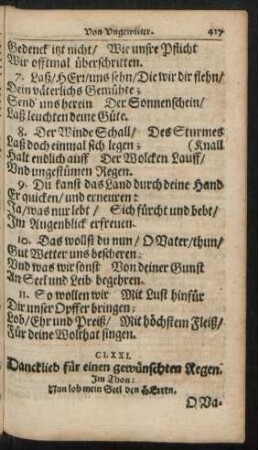 Von Ungewitter. 427
Gedenck itzt nicht/ Wie unsre Pflicht
Wir offtmal überschritten.
7. Laß/ HErr/ uns sehn/ Die wir dir flehn/
Dein väterlichs Gemühte;
Send' uns herein Der Sonnenschein/
Laß leuchten deine Güte.
8. Der Winde Schall/ Des Sturmes
Laß doch einmal sich legen; (Knall
Halt endlich auff Der Wolcken Lauff/
Und ungestümen Regen.
9. Du kanst das Land durch deine Hand
Erquicken/ und erneuren:
Ja/ was nur lebt/ Sich fürcht und bebt/
Im Augenblick erfreuen.
10. Das wollst du nun/ O Vater/ thun/
Gut Wetter uns bescheren:
Und was wir sonst Von deiner Gunst
An Seel und Leib begehren.
11. So wollen wir Mit Lust hinfür
Dir unser Opffer bringen:
Lob/ Ehr und Preiß/ Mit höchstem Fleiß/
Für deine Wolthat singen.
CLXXI.
Dancklied für einen gewünschten Regen.
Im Thon:
Nun lob mein Seel den HErrn.
O Va-